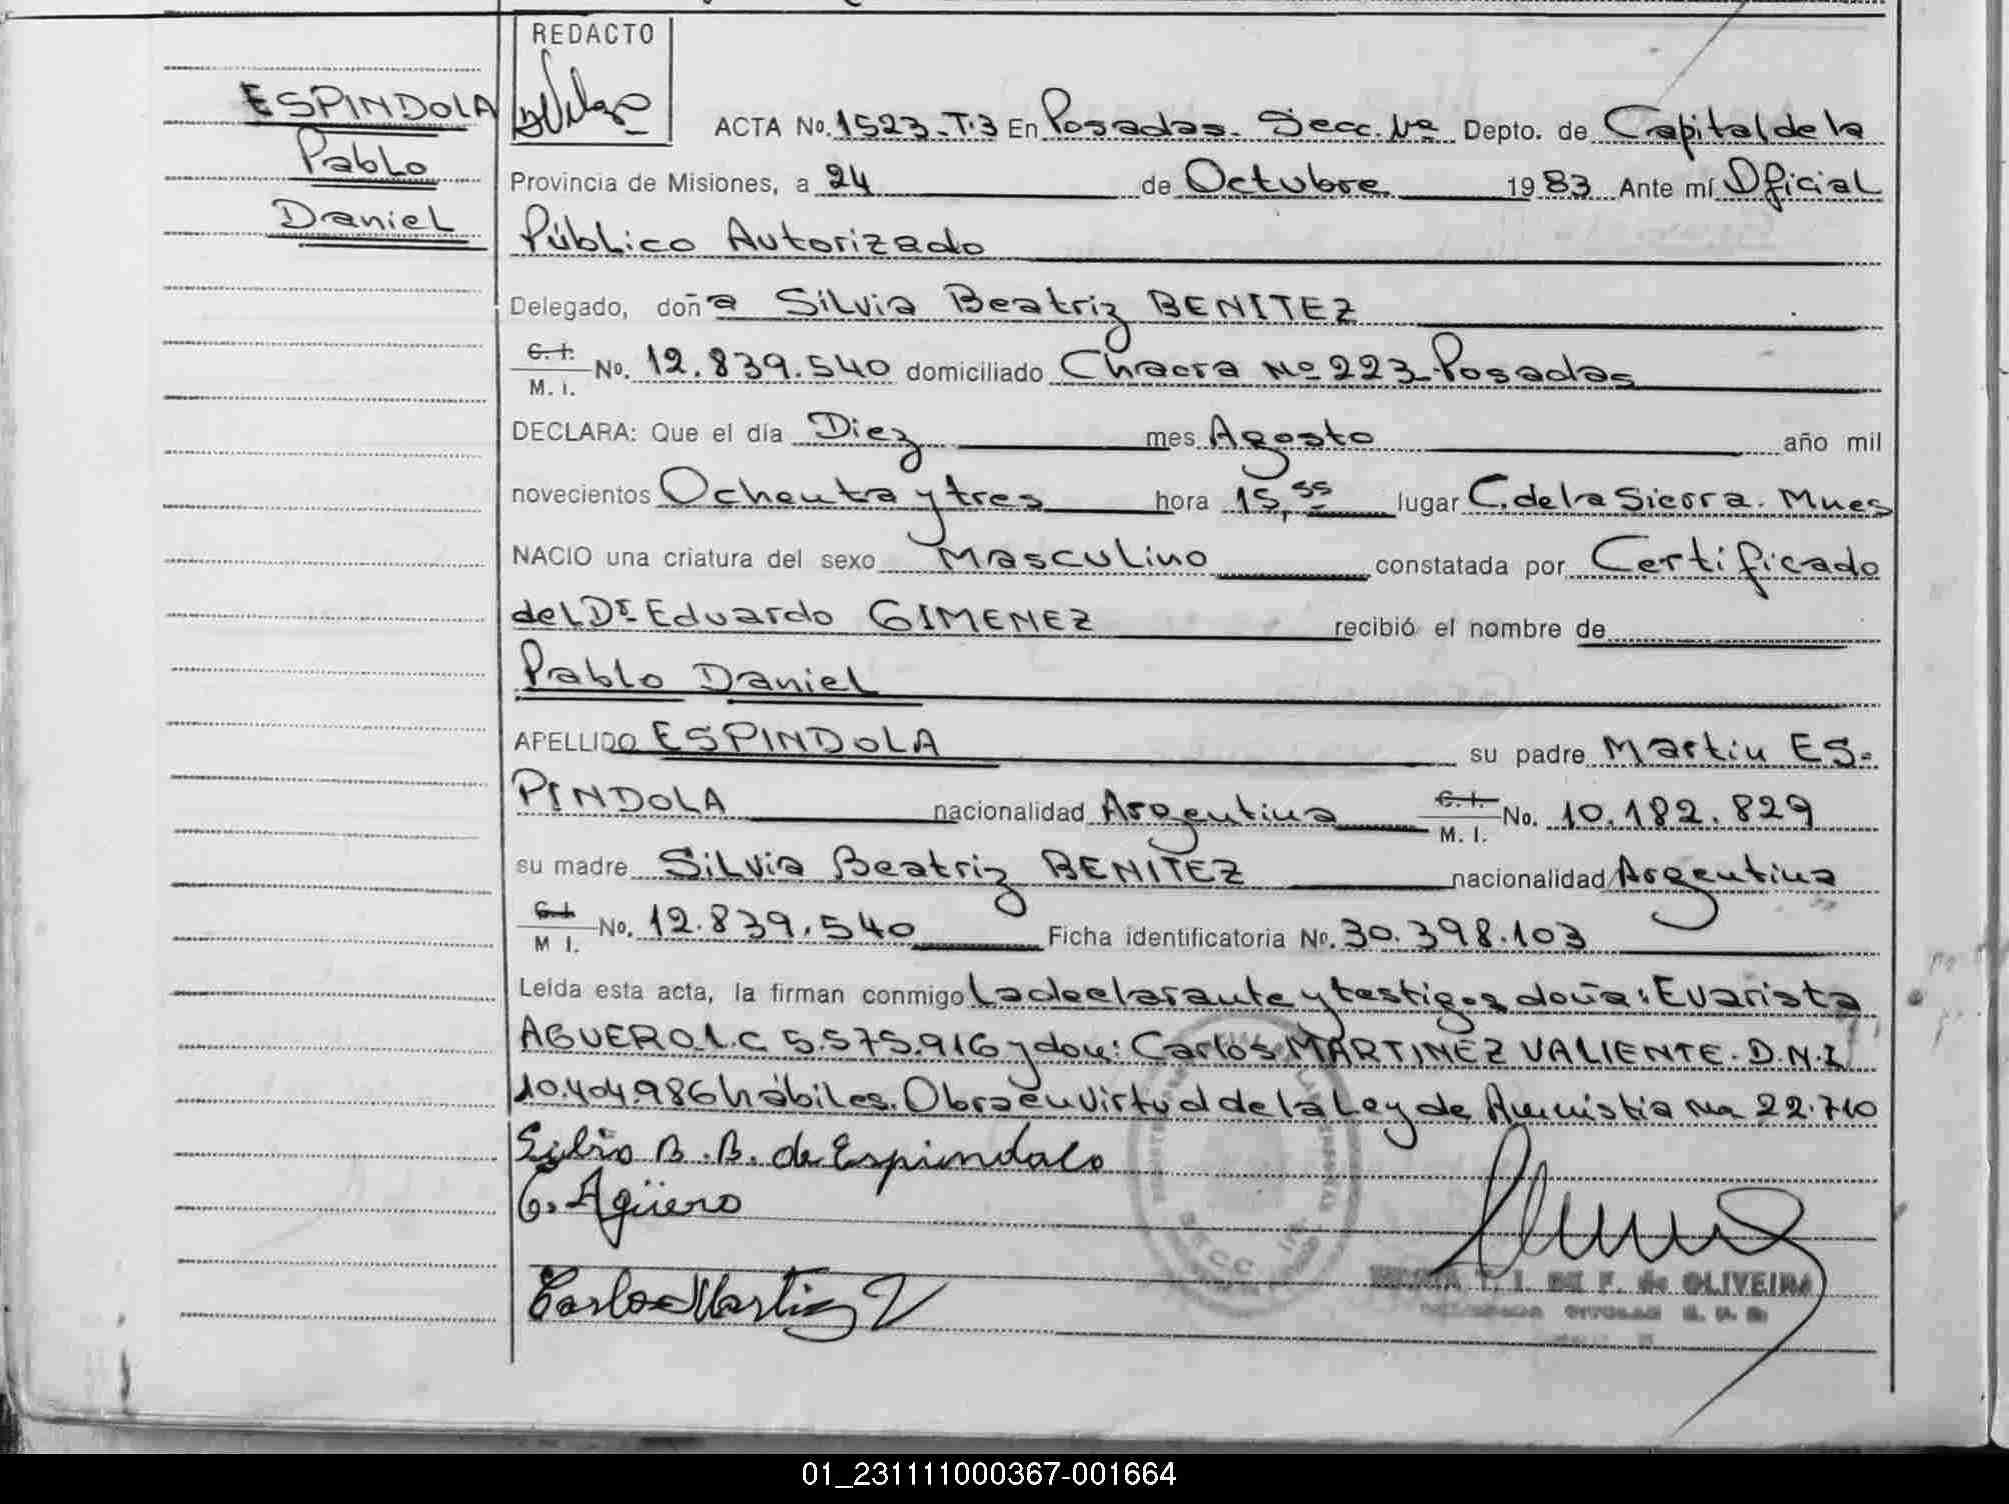 REDACTO
ESPINDOLA
Pablo
Daniel
ACTA No. 1523-T.3 En Posadas. Secc. 1ra Depto. de Capital de la
Provincia de Misiones, a 24 de Octubre 1983 Ante mí Oficial
Público Autorizado
Delegado, doña Silvia Beatriz BENITEZ
C.I. M.I. No. 12.839.540 domiciliado Chacra No 223 Posadas
DECLARA: Que el día Diez mes Agosto año mil
novecientos Ochenta y tres hora 15,55 lugar C. de la Sierra. Mnes
NACIO una criatura del sexo Masculino constatada por Certificado
del Dr Eduardo GIMENEZ recibió el nombre de
Pablo Daniel
APELLIDO ESPINDOLA su padre Martin ES-
PINDOLA nacionalidad Argentina C.I. M.I. No. 10.182.829
su madre Silvia Beatriz BENITEZ nacionalidad Argentina
C.I. M I. No. 12.839.540 Ficha identificatoria No. 30.398.103
Leída esta acta, la firman conmigo La declarante y testigos doña: Evarista
AGUERO L.C 5.575.916 y don: Carlos MARTINEZ VALIENTE. D.N.I
10.404.986 hábiles. Obra en virtud de la Ley de Amnistia 22.710
Silvia B. B. de Espindola
E. Agüero
Carlos Martinez V
F. de OLIVEIRA
SECC
01_231111000367-001664